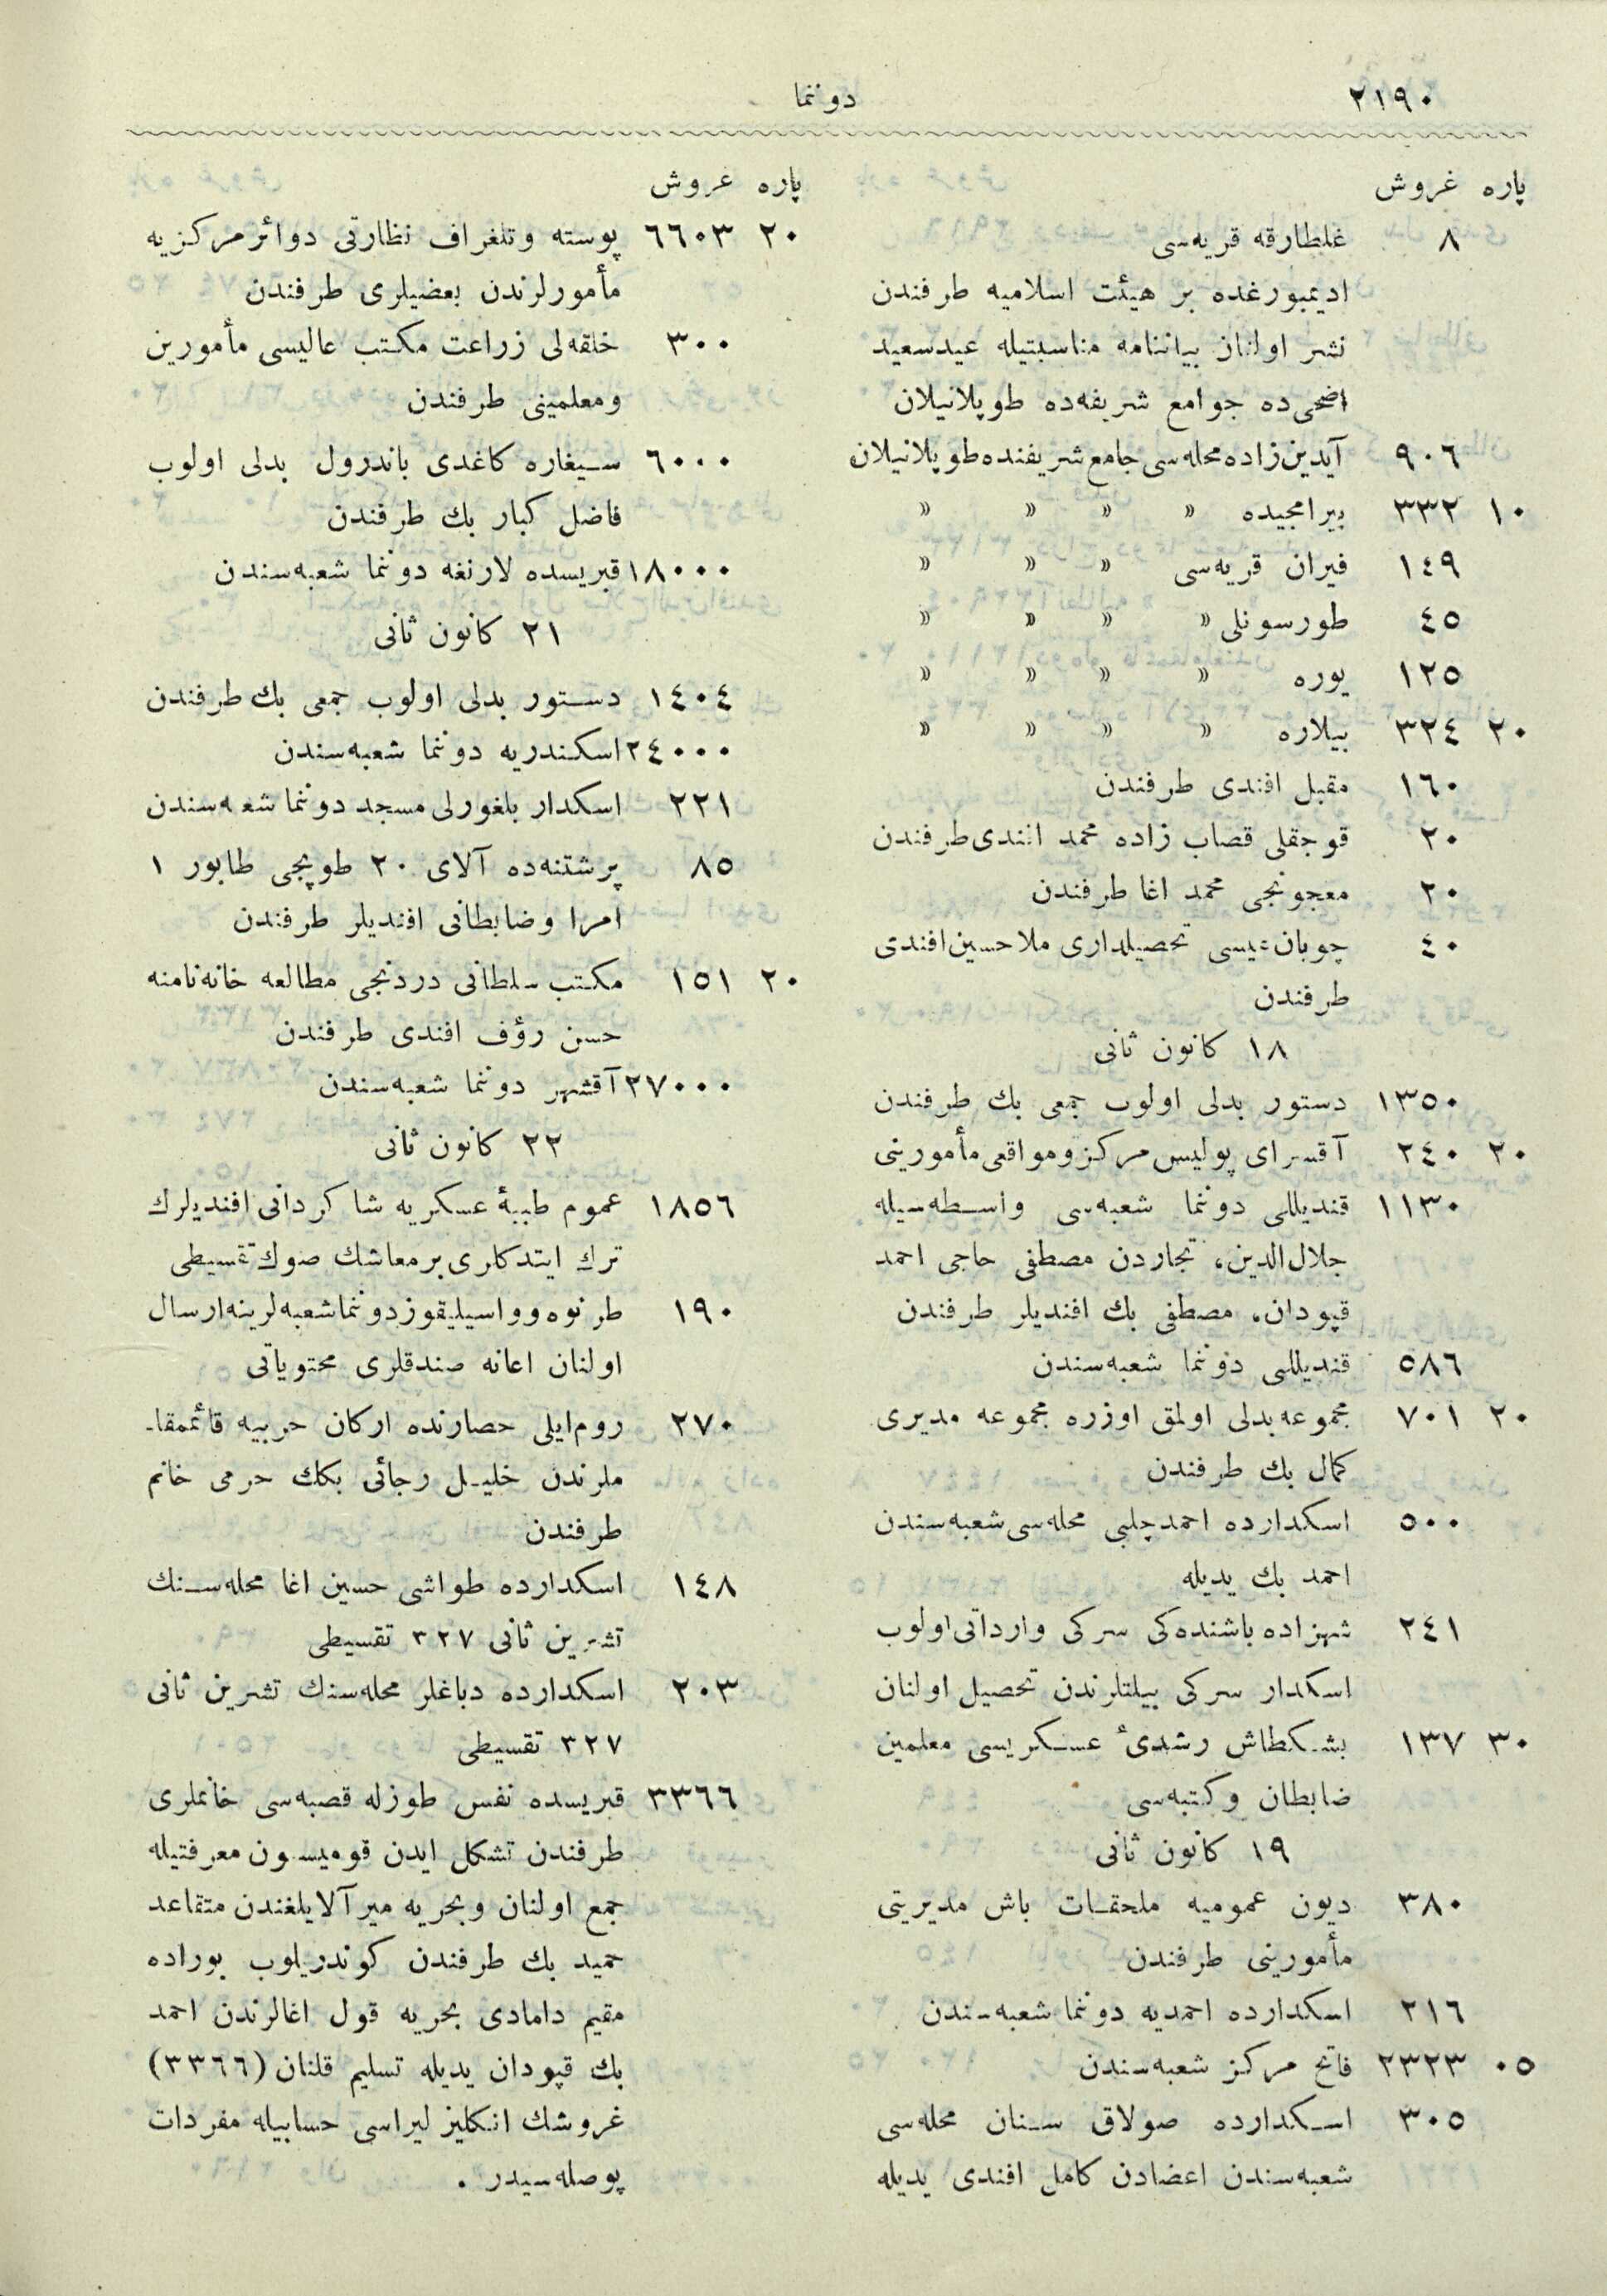 ٢١٩٠
دوننما
پاره غروش
٨ غلطارقه قریه‌سی
ادیمبورغده بر هیئت اسلامیه طرفندن
نشر اولنان بیاننامه مناسبتیله عید سعید
اضحی‌ده جوامع شریفه‌ده طوپلانیلان
٩٠٦ آیدین‌زاده محله‌سی جامع شریفنده طوپلانیلان
١٠ ٣٣٢ بیرامجیده » » » »
١٤٩ فیران قریه‌سی » » »
٤٥ طورسونلی » » » »
١٢٥ یوره » » » »
٢٠ ٣٢٤ بیلاره » » » »
١٦٠ مقبل افندی طرفندن
٢٠ قوجقلی قصاب زاده محمد افندی طرفندن
٢٠ معجونجی محمد اغا طرفندن
٤٠ چوبان عیسی تحصیلداری ملا حسین افندی
طرفندن
١٨ كانون ثانی
١٣٥٠ دستور بدلی اولوب جمعی بك طرفندن
٢٠ ٢٤٠ آقسرای پولیس مركز و مواقعی مأمورینی
١١٣٠ قندیللی دوننما شعبه‌سی واسطه‌سیله
جلال‌الدین، تجاردن مصطفی حاجی احمد
قپودان، مصطفی بك افندیلر طرفندن
٥٨٦ قندیللی دوننما شعبه‌سندن
٢٠ ٧٠١ مجموعه بدلی اولمق اوزره مجموعه مدیری
كمال بك طرفندن
٥٠٠ اسكدارده احمد چلبی محله‌سی شعبه‌سندن
احمد بك یدیله
٢٤١ شهزاده باشنده‌كی سركی وارداتی اولوب
اسكدار سركی بیلتلرندن تحصیل اولنان
٣٠ ١٣٧ بشكطاش رشدیٔ عسكریسی معلمین
ضابطان و كتبه‌سی
١٩ كانون ثانی
٣٨٠ دیون عمومیه ملحقات باش مدیریتی
مأمورینی طرفندن
٢١٦ اسكدارده احمدیه دوننما شعبه‌سندن
٠٥ ٢٣٢٣ فاتح مركز شعبه‌سندن
٣٠٥ اسكدارده صولاق سنان محله‌سی
شعبه‌سندن اعضادن كامل افندی یدیله
پاره غروش
٢٠ ٦٦٠٣ پوسته و تلغراف نظارتی دوائر مركزیه
مأمورلرندن بعضیلری طرفندن
٣٠٠ خلقه‌لی زراعت مكتب عالیسی مأمورین
ومعلمینی طرفندن
٦٠٠٠ سیغاره كاغدی باندرول بدلی اولوب
فاضل كبار بك طرفندن
١٨٠٠٠ قبریسده لارنغه دوننما شعبه‌سندن
٢١ كانون ثانی
١٤٠٤ دستور بدلی اولوب جمعی بك طرفندن
٢٤٠٠٠ اسكندریه دوننما شعبه‌سندن
٢٢١ اسكدار بلغورلی مسجد دوننما شعبه‌سندن
٨٥ پرشتنه‌ده آلای ٢٠ طوپجی طابور ١
امرا و ضابطانی افندیلر طرفندن
٢٠ ١٥١ مكتب سلطانی دردنجی مطالعه خانه نامنه
حسن رؤف افندی طرفندن
٢٧٠٠٠ آقشهر دوننما شعبه‌سندن
٢٢ كانون ثانی
١٨٥٦ عموم طبیهٔ عسكریه شاكردانی افندیلرك
ترك ایتدكاری بر معاشك صوك تقسیطی
١٩٠ طرنوه و واسیلیقوز دوننما شعبه‌لرینه ارسال
اولنان اعانه صندقلری محتویاتی
٢٧٠ روم‌ایلی حصارنده اركان حربیه قائممقا-
ملرندن خلیل رجائی بكك حرمی خانم
طرفندن
١٤٨ اسكدارده طواشی حسین اغا محله‌سنك
تشرین ثانی ٣٢٧ تقسیطی
٢٠٣ اسكدارده دباغلر محله‌سنك تشرین ثانی
٣٢٧ تقسیطی
٣٣٦٦ قبریسده نفس طوزله قصبه‌سی خانملری
طرفندن تشكل ایدن قومیسون معرفتیله
جمع اولنان و بحریه میرآلایلغندن متقاعد
حمید بك طرفندن كوندریلوب بوراده
مقیم دامادی بحریه قول اغالرندن احمد
بك قپودان یدیله تسلیم قلنان (٣٣٦٦)
غروشك انكلیز لیراسی حسابیله مفردات
پوصله‌سیدر .